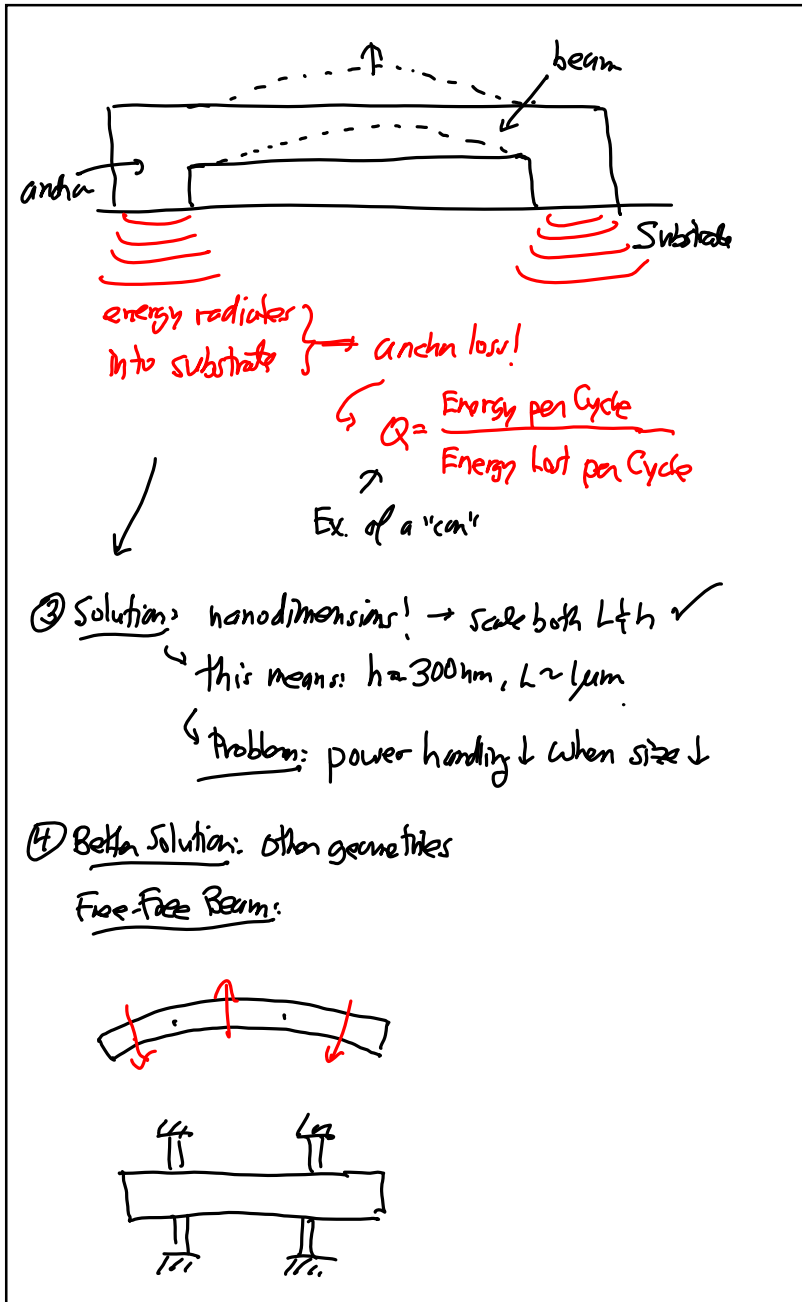 beam
anchor
Substrate
energy radiates
into substrate } → anchor loss!
Q = Energy per Cycle
Energy Lost per Cycle
Ex. of a "con"
③ Solution: nanodimensions! → scale both L & h ✓
this means: h ≈ 300nm, L ~ 1μm
Problem: power handling ↓ when size ↓
④ Better Solution: other geometries
Free-Free Beam: